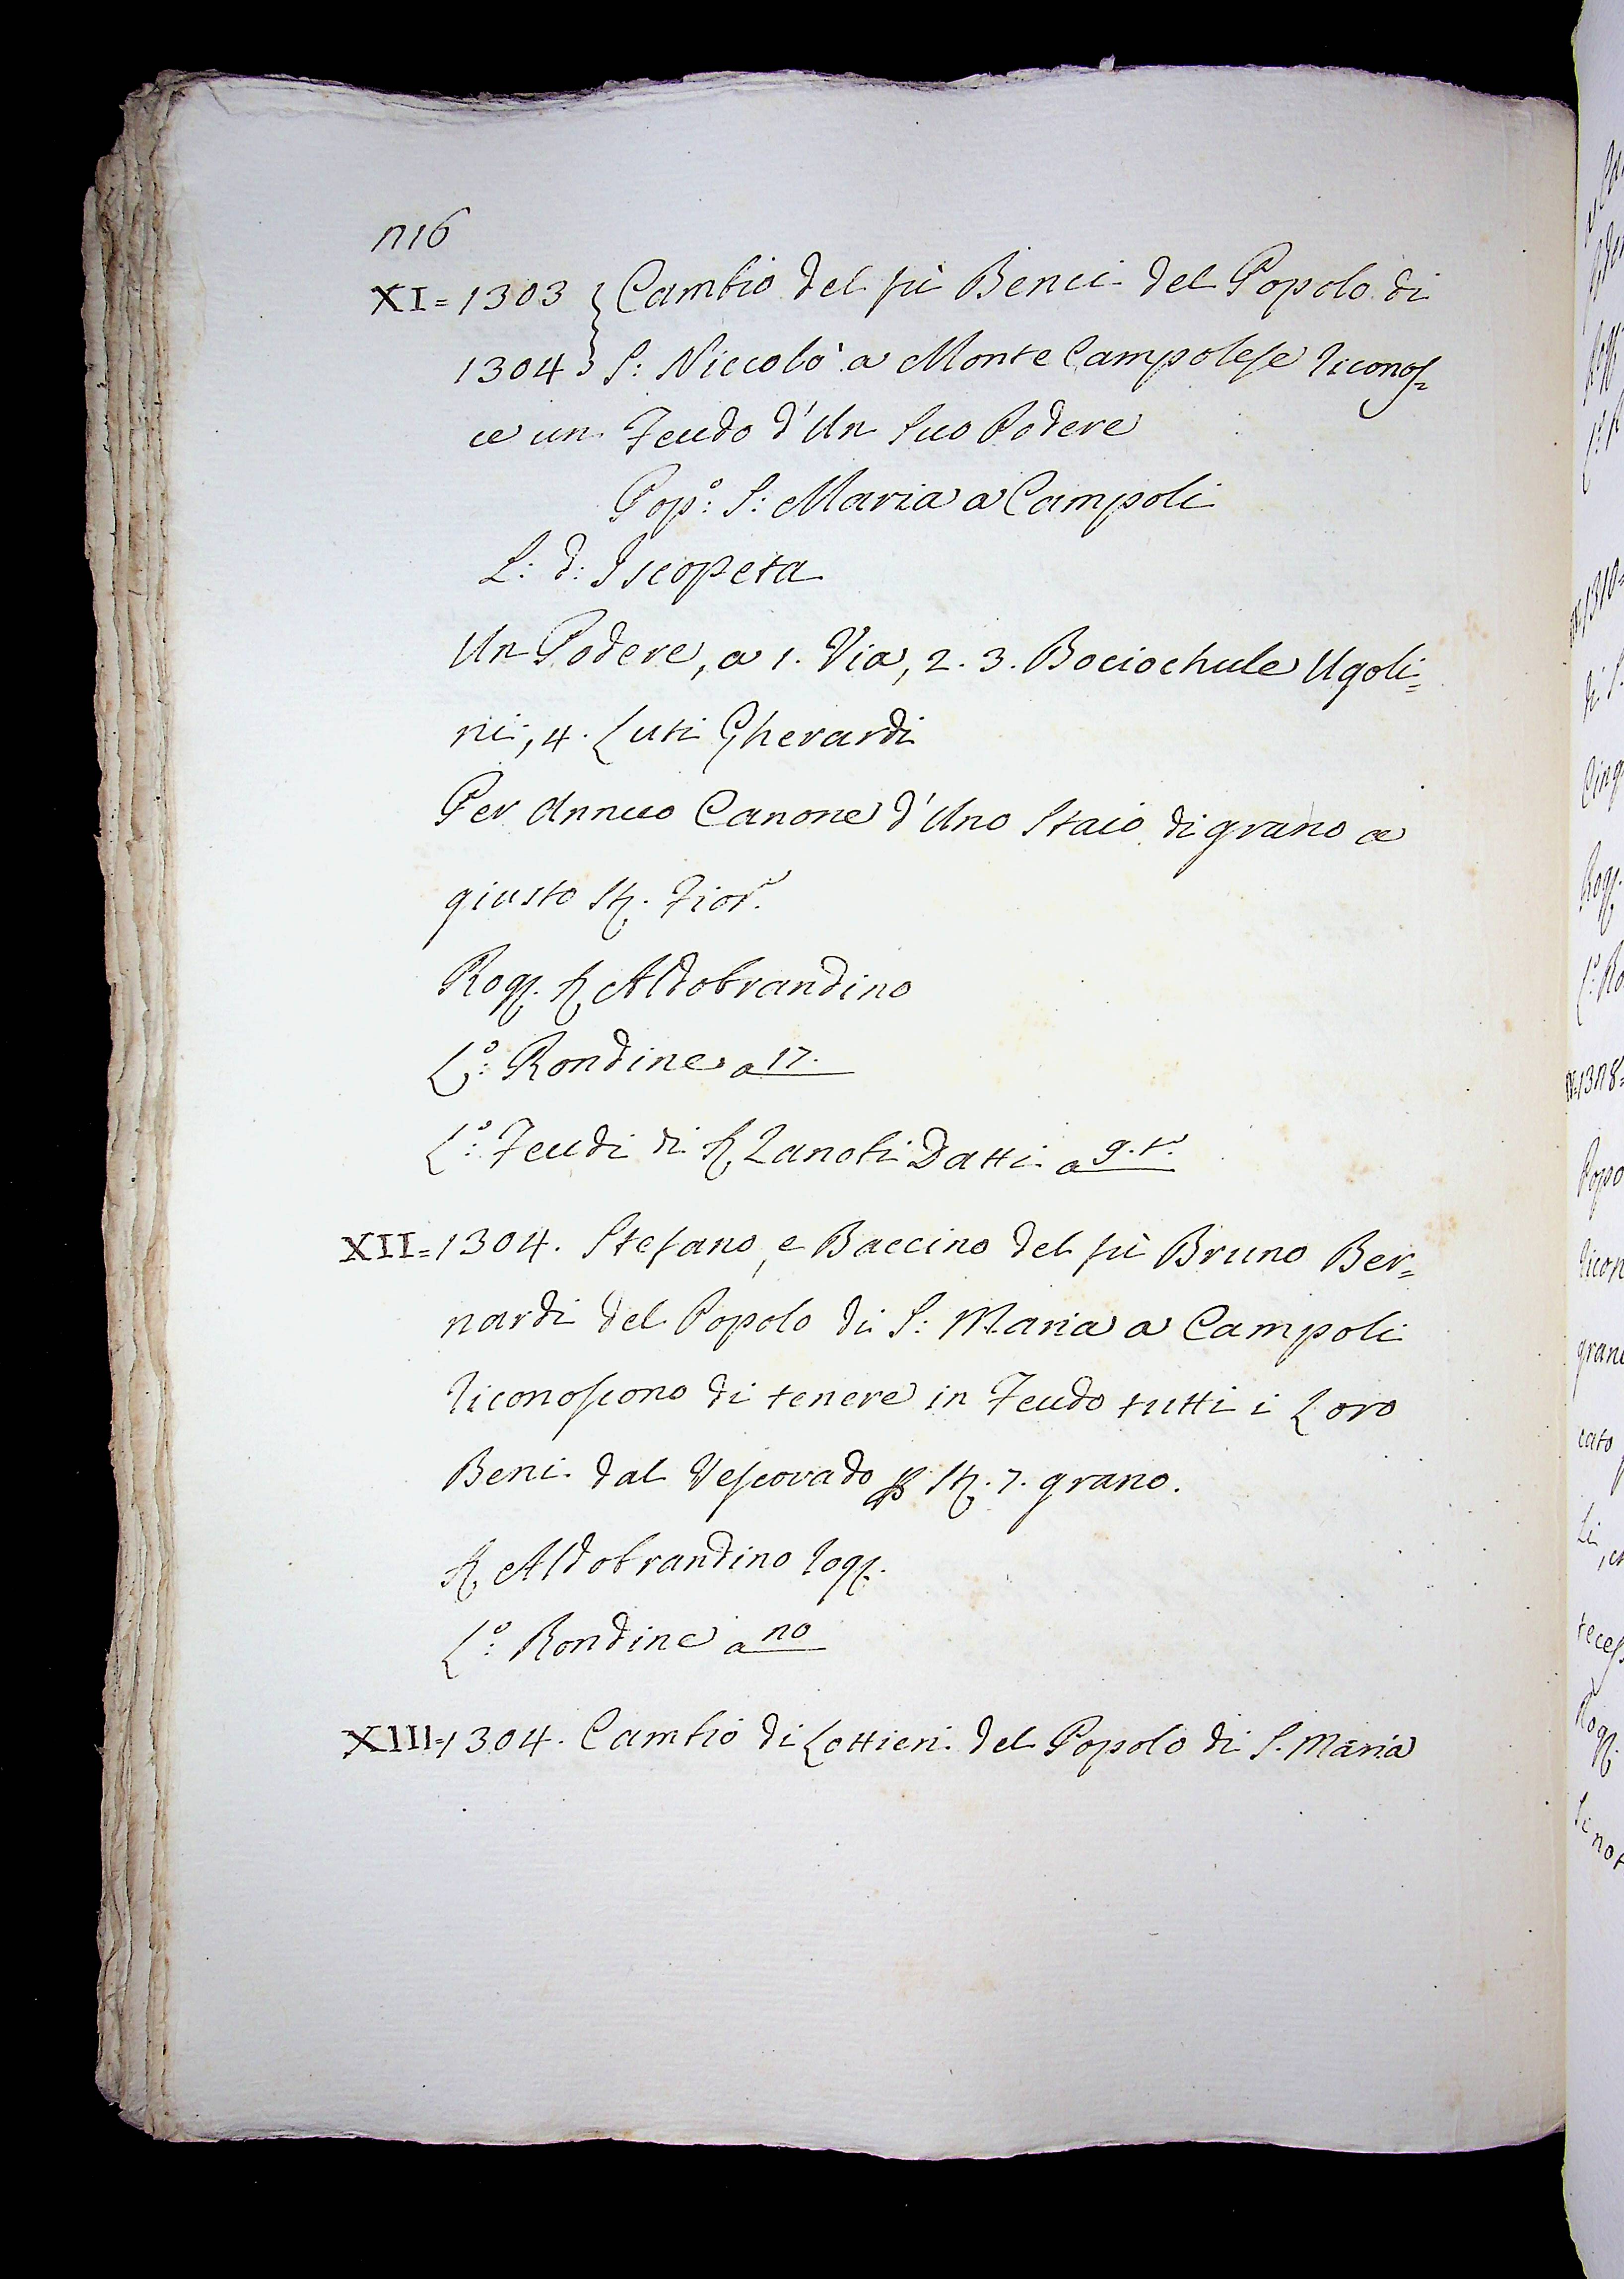 216
XI=1303 { Cambio del fù Benci del Popolo di
1304 } S: Niccolò a Monte Campolese riconos=
ce un Feudo d'Un Suo Podere
Pop:° S: Maria a Campoli
L: d: Iscopeta
Un Podere, a 1. Via, 2. 3. Bociochule Ugoli=
ni, 4. Luti Gherardi
Per Annuo Canone d'Uno Staio di grano a
giusto St. Fior.º
Rog. Sr Aldobrandino
L:° Rondine a 17.
L:° Feudi di Sr Zanobi Datti a 9.t.º
XII=1304. Stefano, e Baccino del fù Bruno Ber=
nardi del Popolo di S: Maria a Campoli
riconoscono di tenere in Feudo tutti i Loro
Beni dal Vescovado p St. 7. grano.
Sr Aldobrandino rog.
L:° Rondine a 20
XIII=1304. Cambio di Lottieri del Popolo di S. Maria